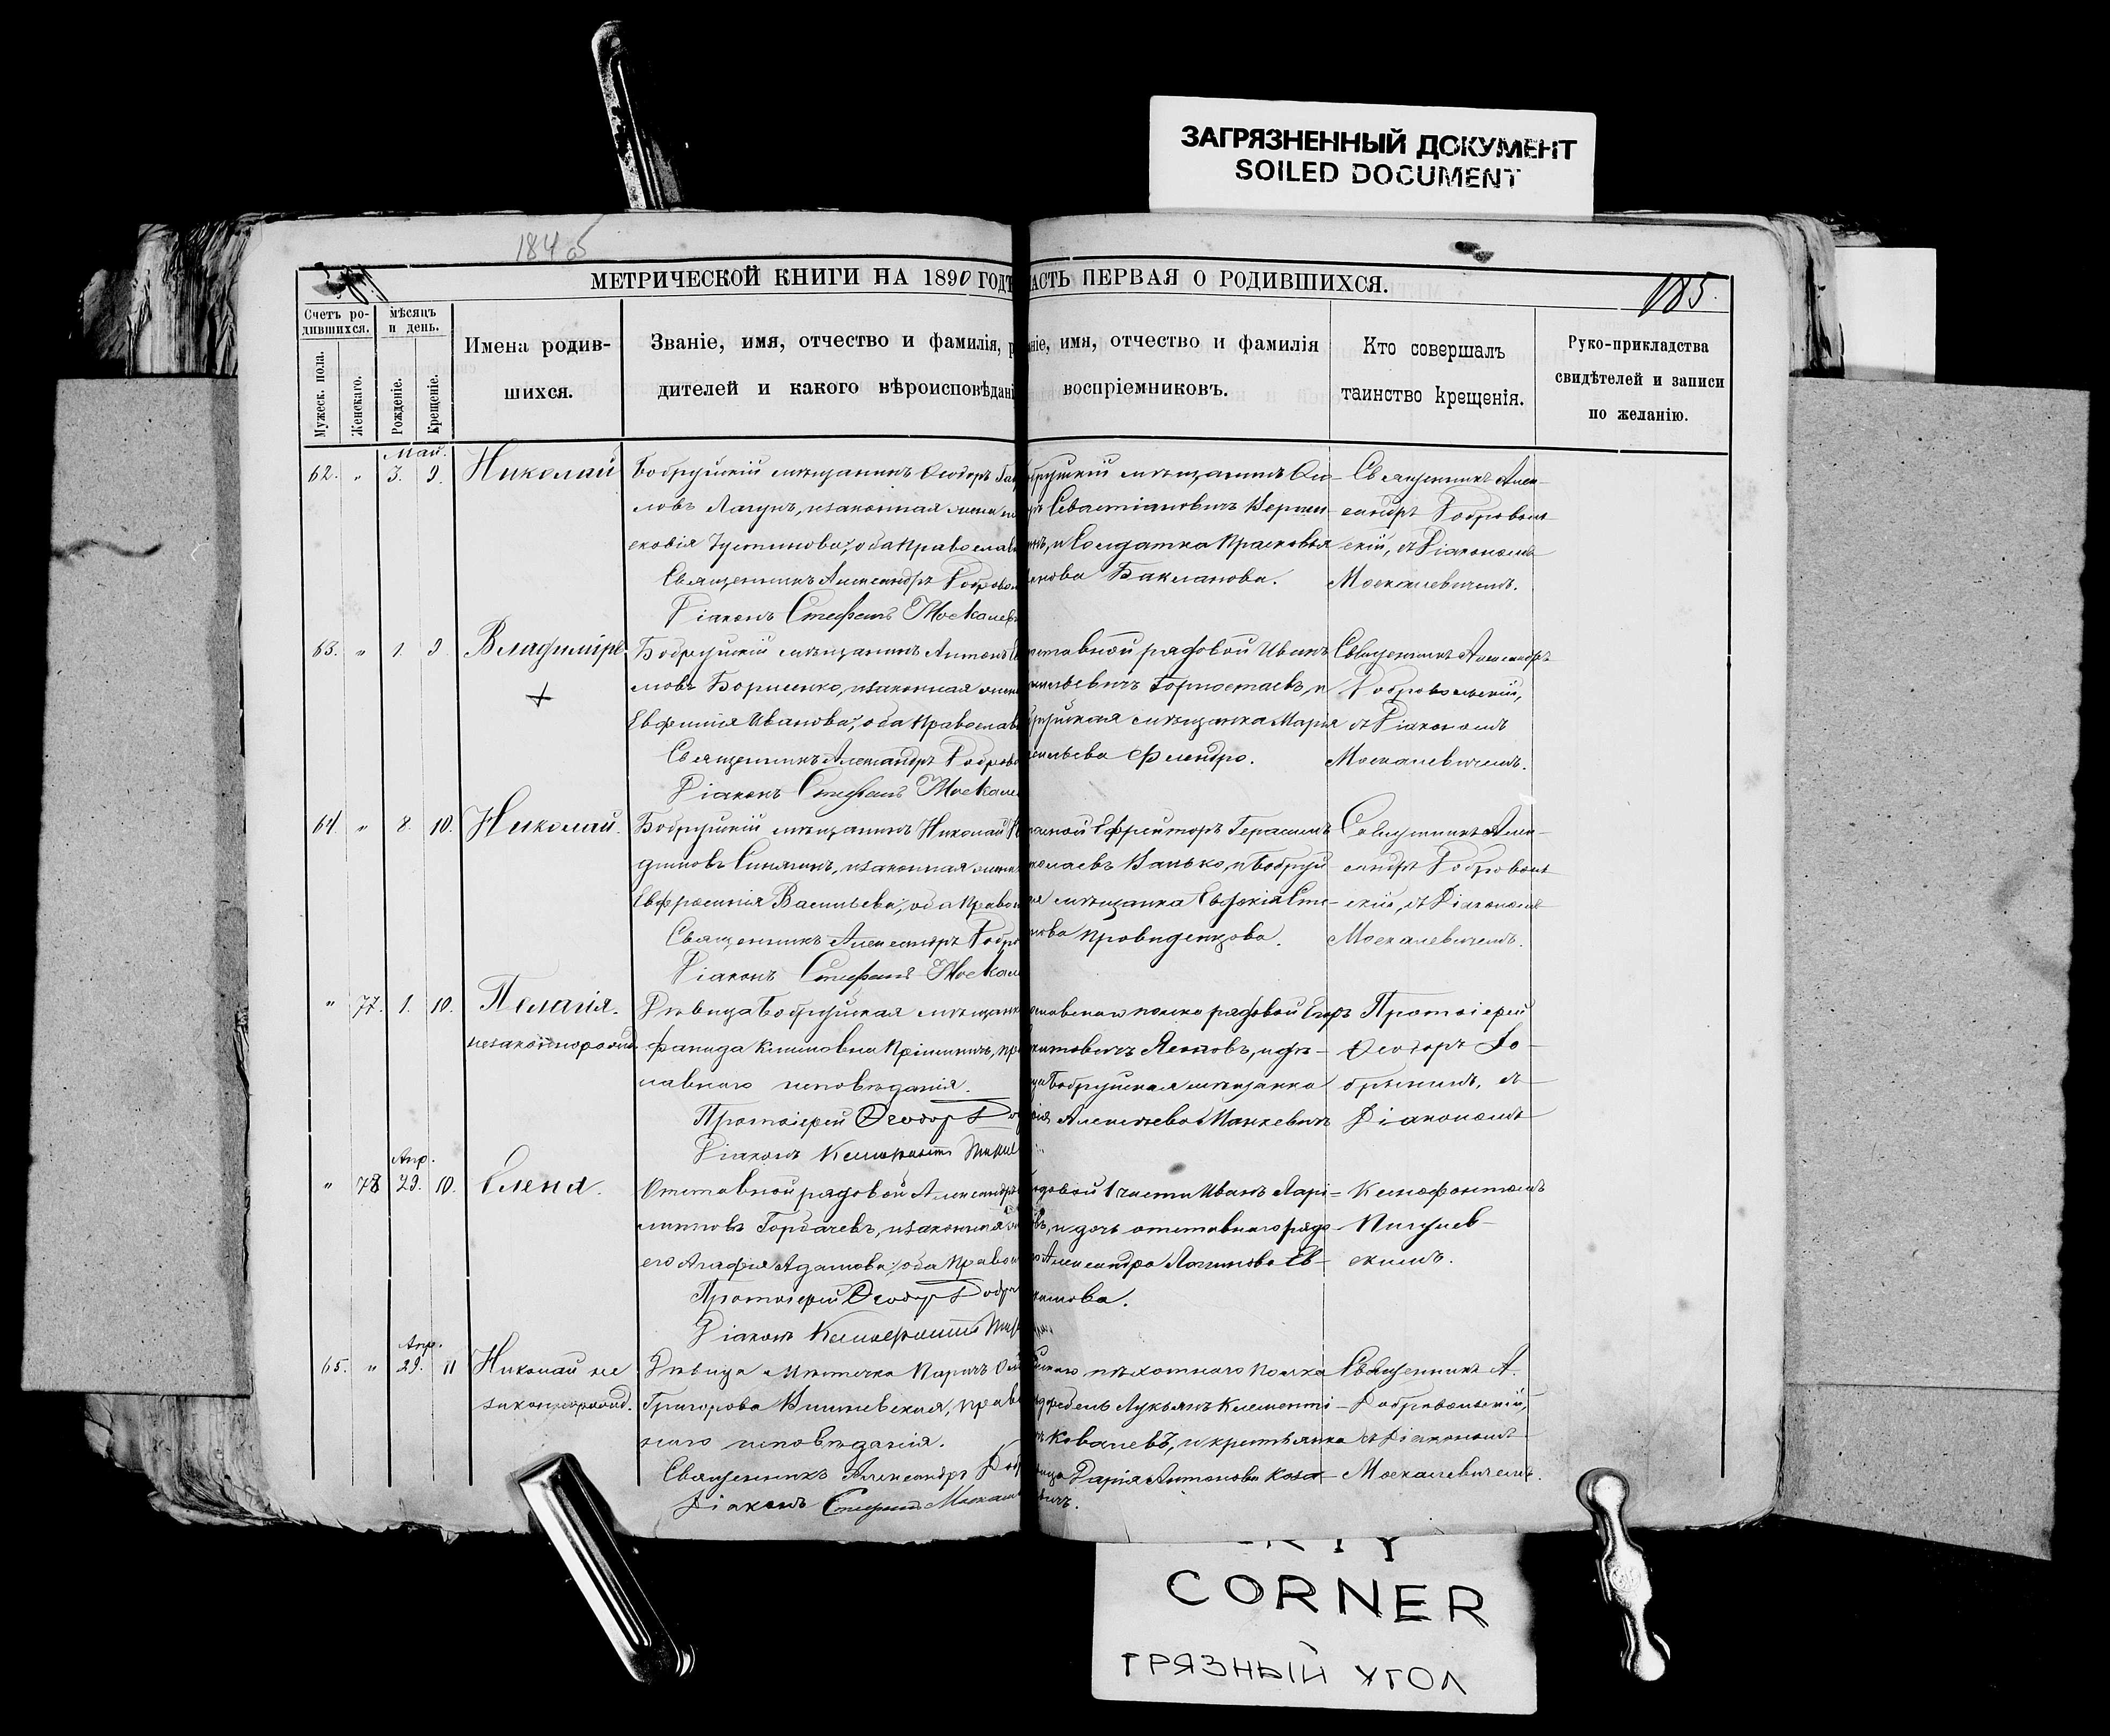 ЗАГРЯЗНЕННЫЙ ДОКУМЕНТ
SOILED DOCUMENT
1845
МЕТРИЧЕСКОЙ КНИГИ НА 1890 ГОДЪ
АСТЬ ПЕРВАЯ О РОДИВШИХСЯ.
185.
Счетъ ро-
дившихся.
Мужеск. пола.
Женскаго.
мѣсяцъ
и день.
Рожденіе.
Крещеніе.
Имена родив-
шихся.
Званіе, имя, отчество и фамилія, р
дителей и какого вѣроисповѣдані
ніе, имя, отчество и фамилія
воспріемниковъ.
Кто совершалъ
таинство крещенія.
Руко-прикладства
свидѣтелей и записи
по желанію.
Май.
62. " 3. 9. Николай
Бобруйскій мѣщанинъ Ѳеодоръ
ловъ Лагунъ, и законная жена
сковія Іустинова, оба Православ
Священникъ Александръ Добровол
Діаконъ Стефанъ Москалев
бруйскій мѣщанинъ Ѳео-
Севастіановичъ
и Солдатка Прасковья
Бакланова.
Священникъ Алек-
сандръ Доброволь-
скій, съ Діакономъ
Москалевичемъ.
63. " 1. 9 Владиміръ
Бобруйскій мѣщанинъ Антонъ
мовъ Борисенко, и законная жена
Евфимія Иванова, оба Православ
Священникъ Александръ Добров
Діаконъ Стефанъ Москале
тставной рядовой Иванъ
сильевичъ Горностаевъ, и
бруйская мѣщанка Марія
сильева Флендро.
Священникъ Александръ
Добровольскій,
съ Діакономъ
Москалевичемъ.
64. " 8. 10. Николай.
Бобруйскій мѣщанинъ Николай
Синякинъ, и законная жена
Евфросинія Васильева, оба Правос
Священникъ Александръ Добро
Діаконъ Стефанъ Москал
Ефрейторъ Герасимъ
колаевъ Ванько, и Бобруй-
мѣщанка Евдокія Сте-
нова Провиденцова.
Священникъ Алек-
сандръ Доброволь-
скій, съ Діакономъ
Москалевичемъ.
" 77. 1. 10. Пелагія.
незаконнорожд.
Дѣвица Бобруйская мѣщанк
Климовна
лавнаго исповѣданія.
Протоіерей Ѳеодоръ До
Діаконъ Ксенофонтъ
полка рядовой Егоръ
и дѣ-
Бобруйская мѣщанка
Алексѣева Манкевичъ
Протоіерей
Ѳеодоръ До-
брынинъ, съ
Діакономъ
Апр.
" 78 29. 10. Елена.
Отставной рядовой Александръ
Горбачевъ, и законная
его Агафія Адамова, оба Правос
Протоіерей Ѳеодоръ Добр
Діаконъ Ксенофонтъ
довой 1 части Иванъ Лари-
и дочь отставнаго рядо-
Александра Логинова Ев-
кимова.
Ксенофонтомъ
Пигулев-
скимъ.
Апр.
65. " 29. 11 Николай не
законнорожд.
Дѣвица мѣстечка Паричъ
Григорова Вишневская, прав
наго исповѣданія.
Священникъ Александръ Доб
Діаконъ Стефанъ Москал
пѣхотнаго полка
Лукьянъ Клименті-
Ковалевъ, и крестьянка
Дарія Антонова Коза-
вичъ.
Священникъ А.
Добровольскій,
съ Діакономъ
Москалевичемъ.
CORNER
ГРЯЗНЫЙ УГОЛ